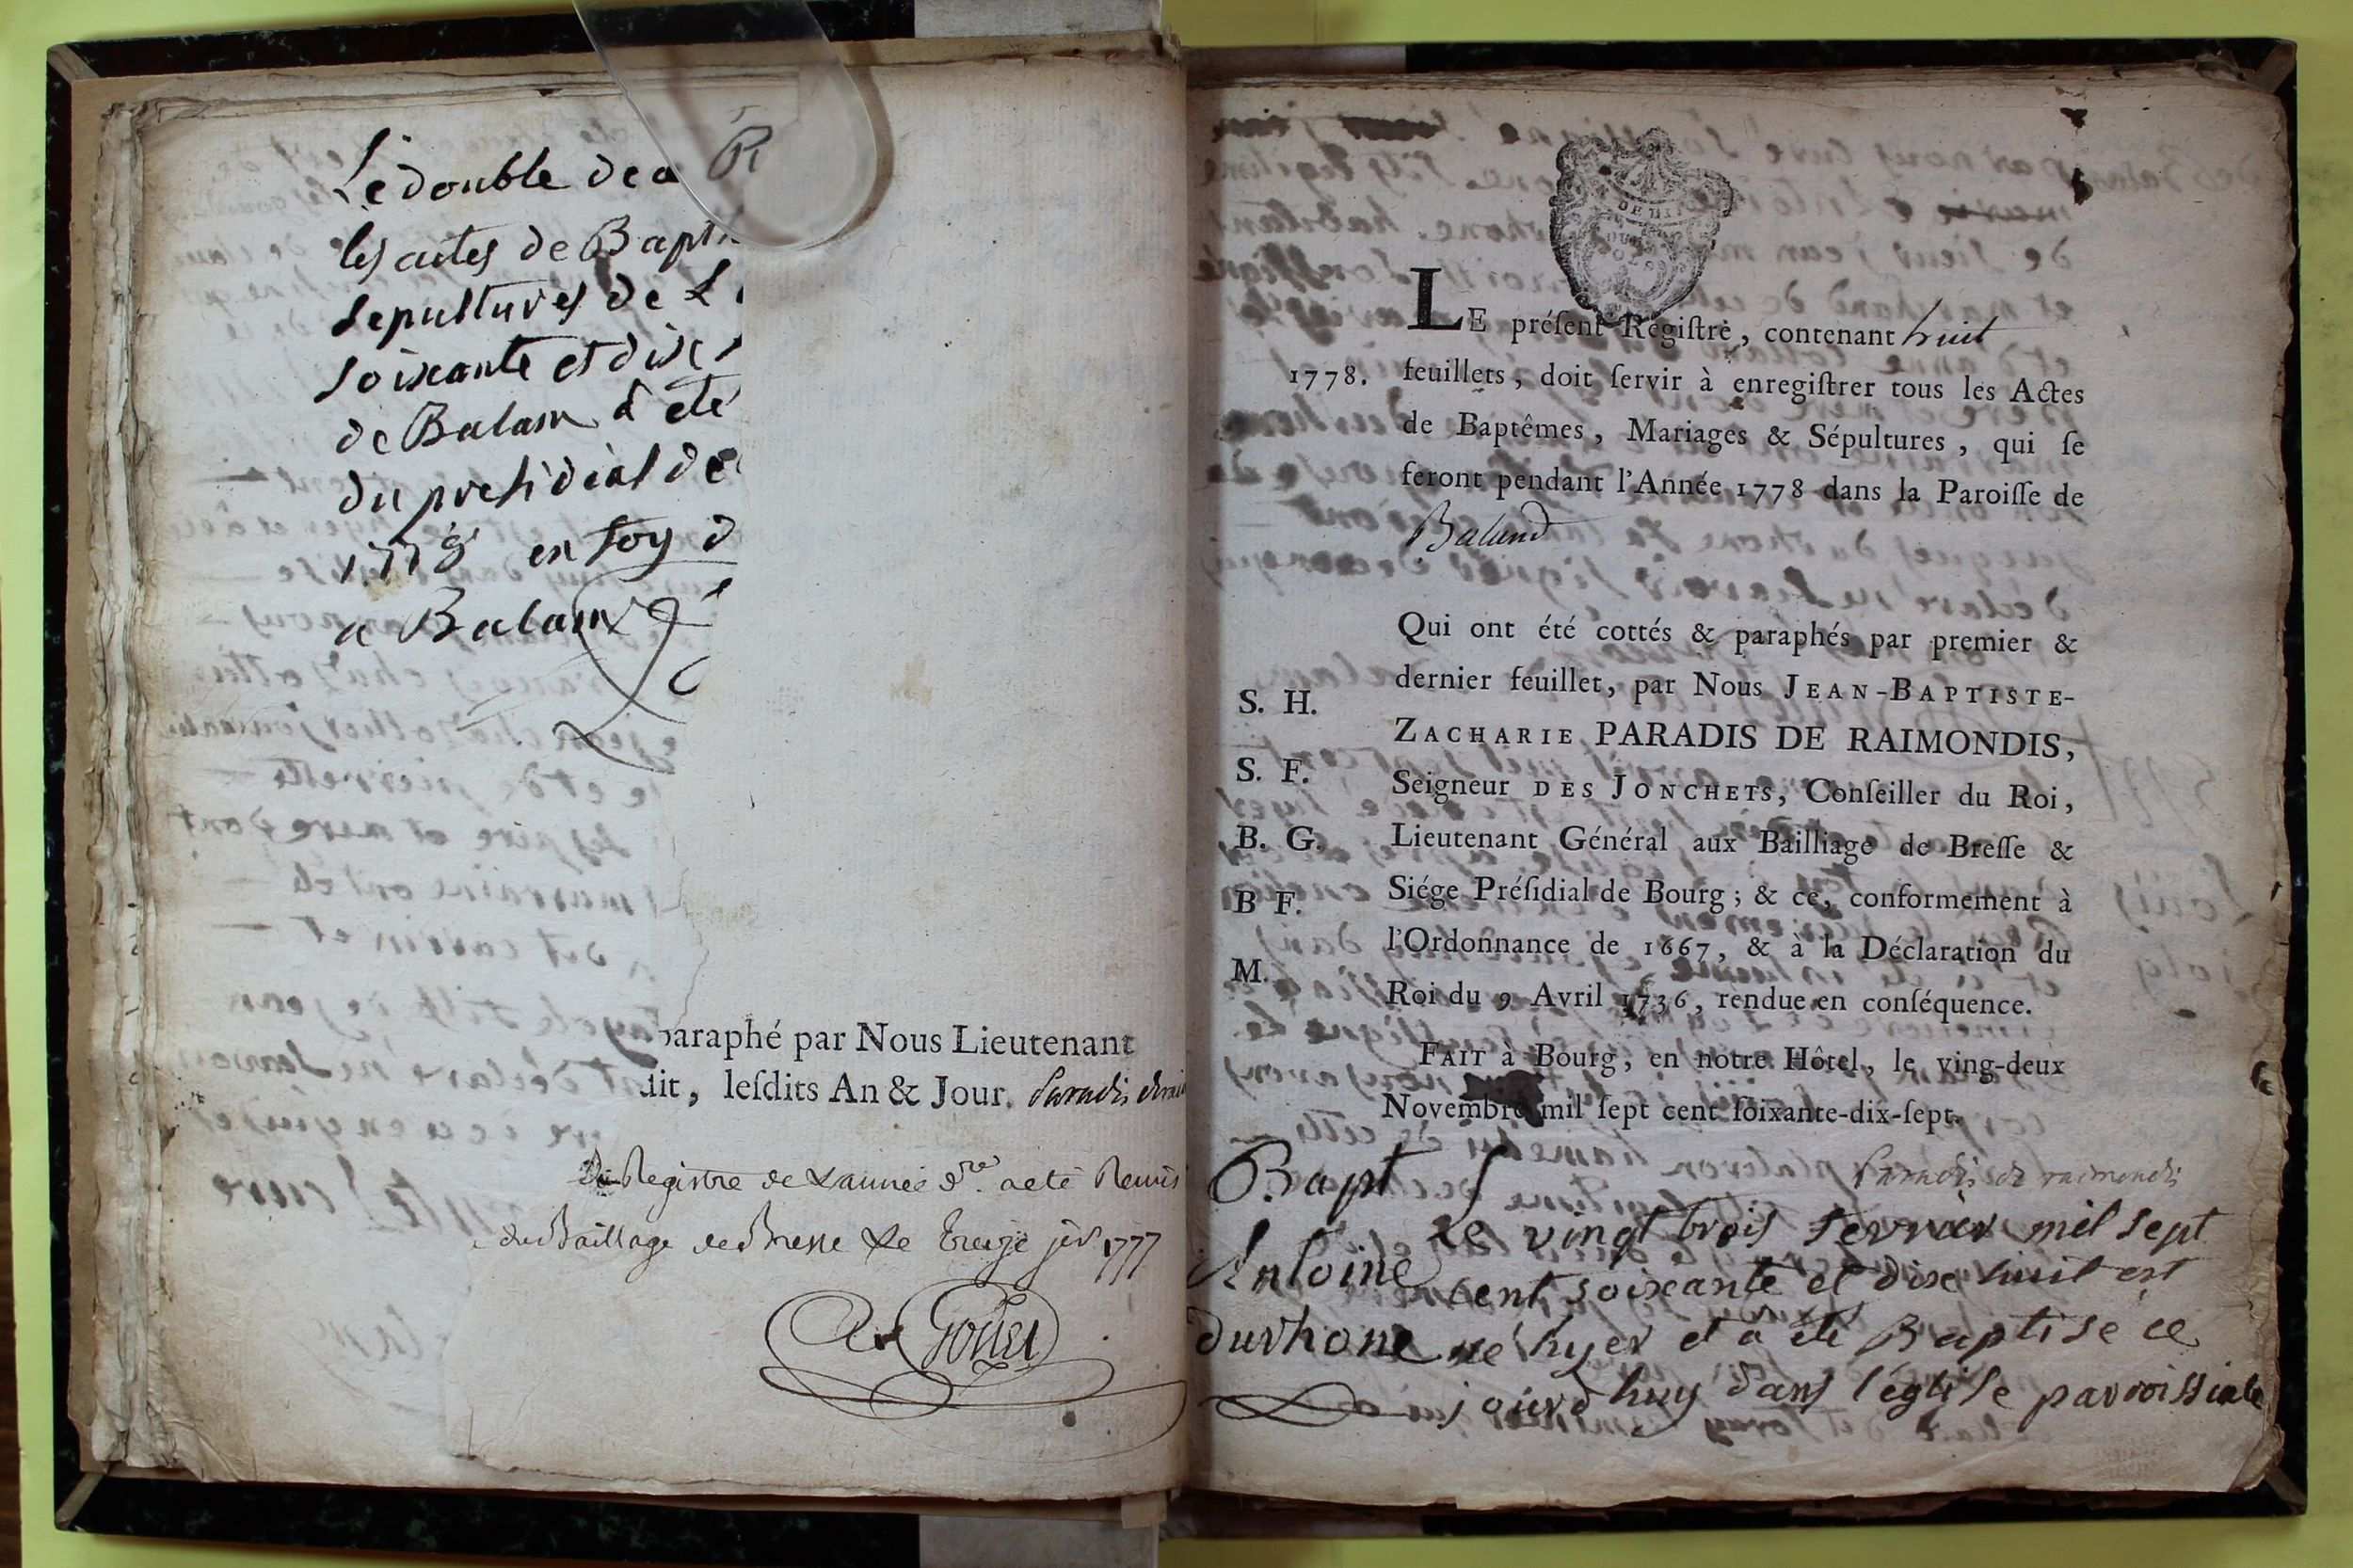 Le double de a R
les actes de Bapt
sepultures de L
soixante et dix
de Balam a eté
du presidial de
1778 en foy d
a Balam
paraphé par Nous Lieutenant
dit, leſdits An & Jour. Paradis de rai
Registre de Lannée d.re a eté Remis
du Baillage de Bresse Le treize jer 1777
LE préſent Regiſtre, contenant huit
1778. feuillets, doit ſervir à enregiſtrer tous les Actes
de Baptêmes, Mariages & Sépultures, qui ſe
feront pendant l'Année 1778 dans la Paroiſſe de
Baland
Qui ont été cottés & paraphés par premier &
dernier feuillet, par Nous JEAN-BAPTISTE-
S. H.
ZACHARIE PARADIS DE RAIMONDIS,
S. F.
Seigneur DES JONCHETS, Conſeiller du Roi,
B. G. Lieutenant Général aux Bailliage de Breſſe &
B F. Siége Préſidial de Bourg ; & ce, conformement à
l'Ordonnance de 1667, & à la Déclaration du
M.
Roi du 9 Avril 1736, rendue en conſéquence.
FAIT à Bourg, en notre Hôtel, le ving-deux
Novembre mil ſept cent ſoixante-dix-ſept.
Paradis de raimondis
Bapt
Le vingt trois fevrier mil sept
Antoine cent soixante et dix huit est
durhone né hyer et a été Baptisé ce
jourdhuy dans l'église parroissiale